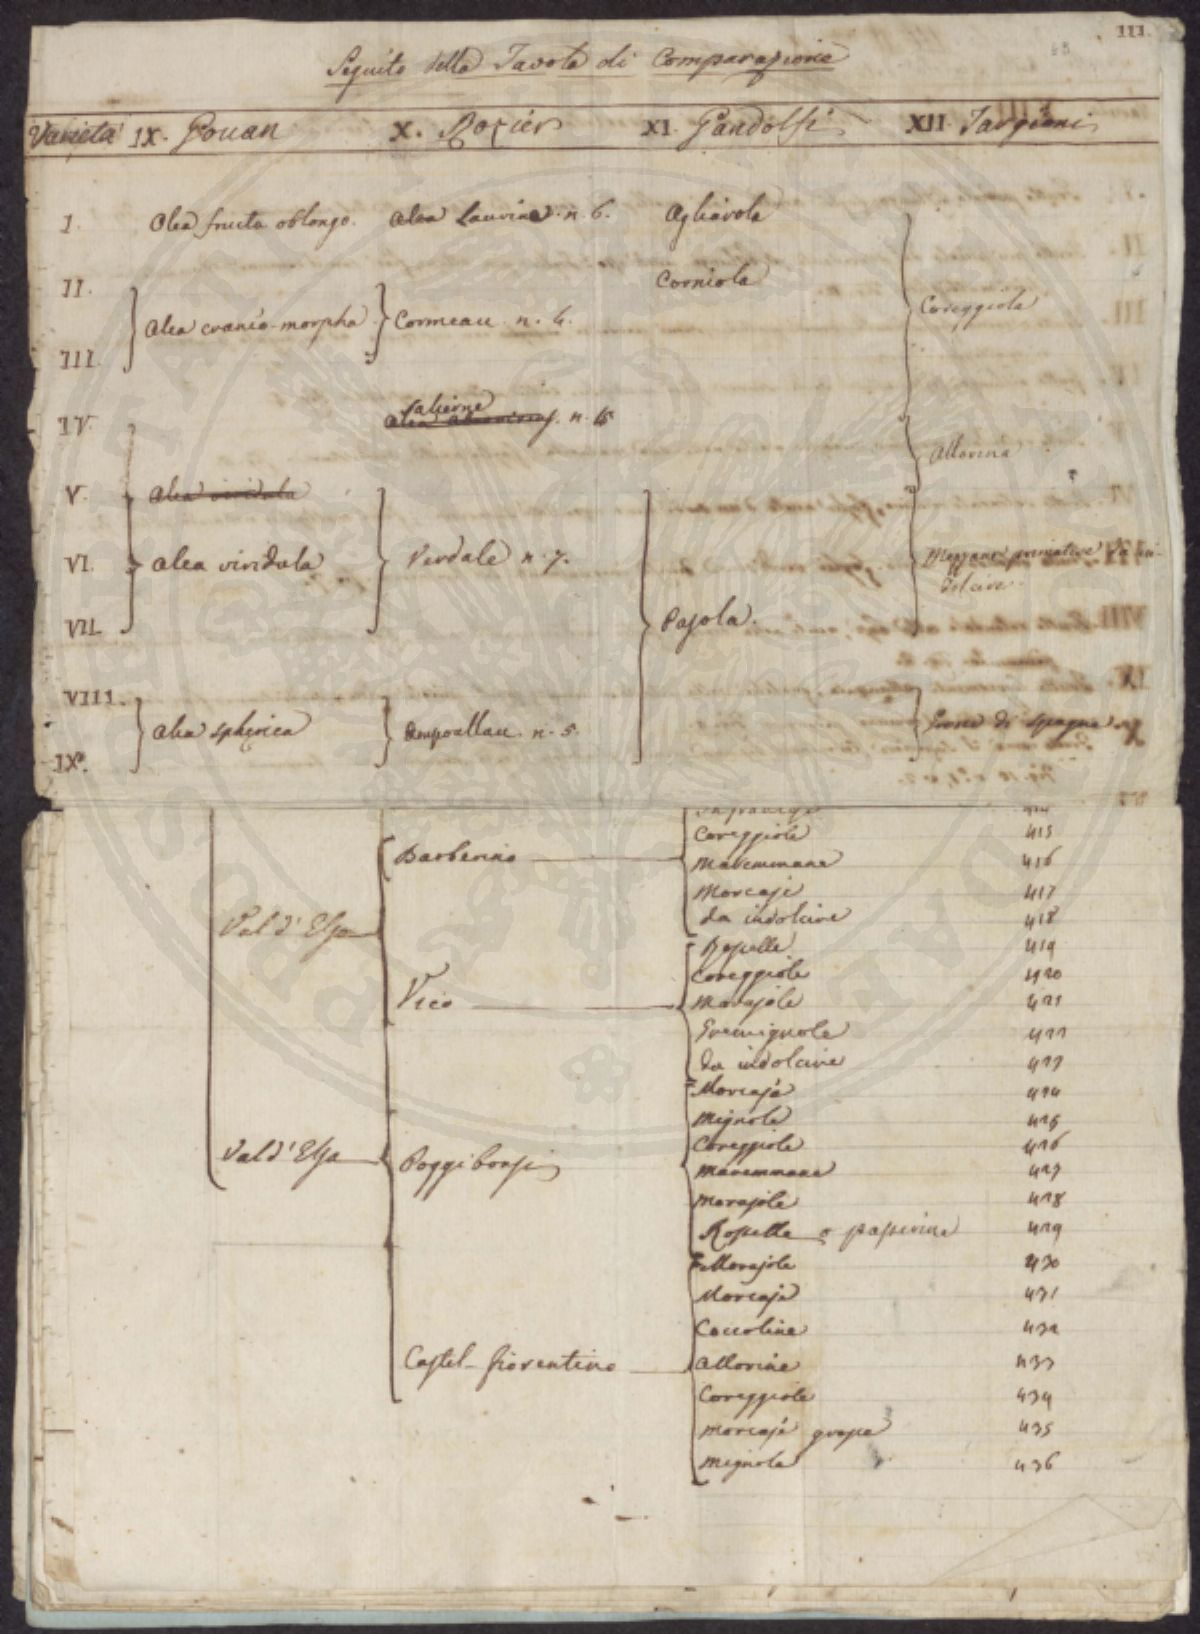 111.
68
Seguito della Tavola di Comparazione
Varietà IX. Gouan X. Rozier XI Gandolfi XII Targioni
I. Olea fructu oblongo. Olea Laurine. n. 6. Agliàrola
II. Corniola
Olea cranio-morpha Cormeau. n. 4. Coreggiola
III.
salierne
IV. n. 15
Allorina
V. Olea viridula
VI. Olea viridula Verdale n. 7. Mezzane da in-
dolcire.
VII. Pajola.
VIII.
Olea spherica Ampoullau. n. 5. di Spagna
IX.
414
Coreggiole 415
Barberino Maremmane 416
Morcaje 417
da indolcire 418
Val d'Elsa
Roselle 419
Coreggiole 420
Vico Morajole 421
Gremignole 422
da indolcire 423
Morcaje 424
Mignole 425
Coreggiole 426
Val d'Elsa Poggibonsi Maremmane 427
Morajole 428
Roselle o passerine 429
Morajole 430
Morcaje 431
Coccoline 432
Castel-fiorentino Allorine 433
Coreggiole 434
Morcaje grosse 435
Mignole 436